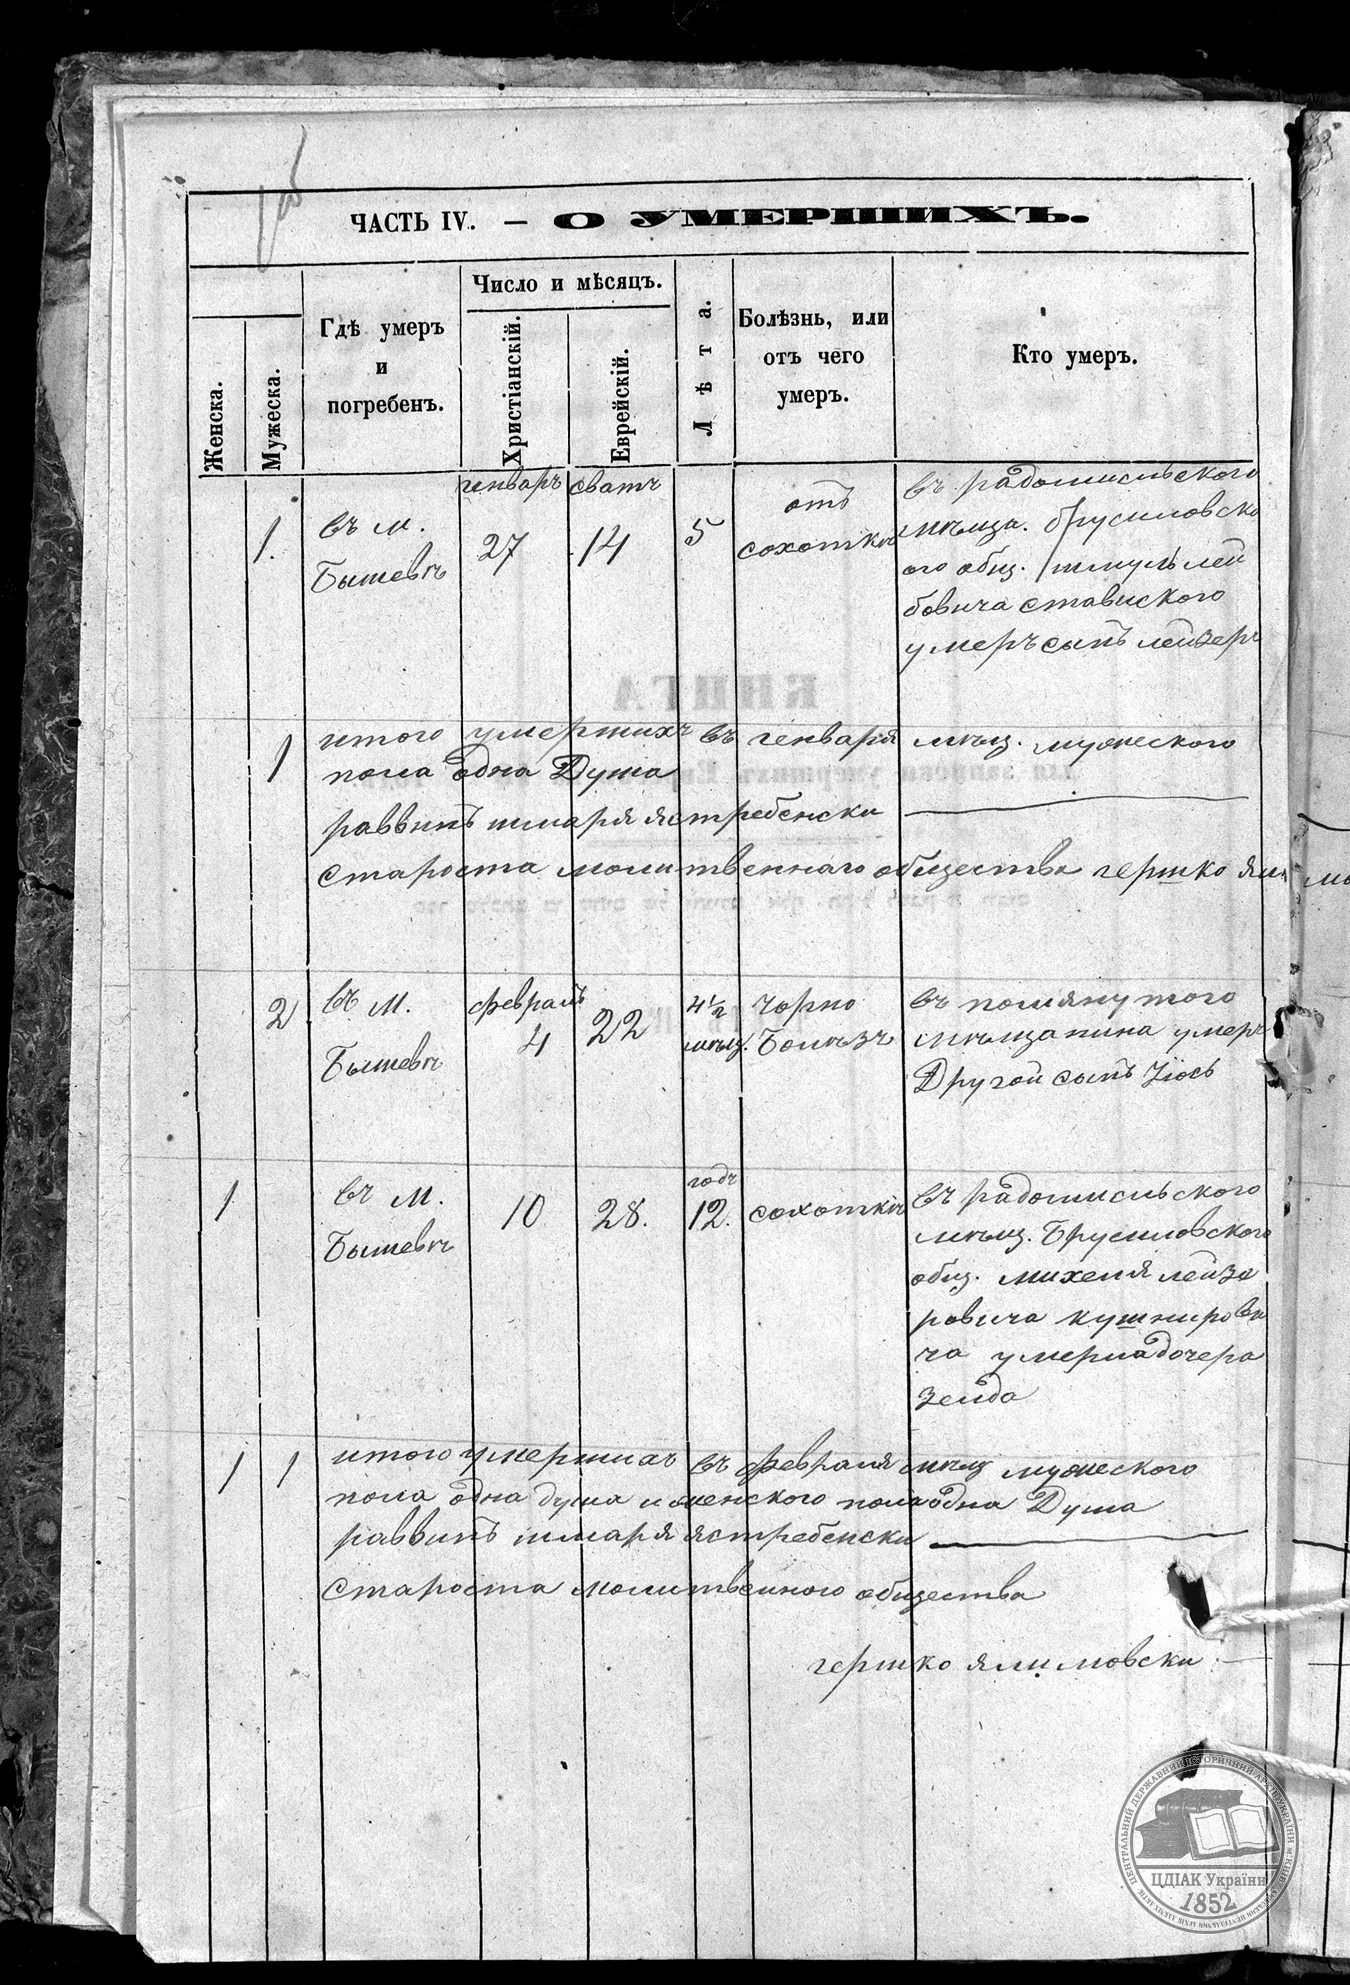 1об
ЧАСТЬ IV. — О УМЕРШИХЪ.
Женска.
Мужеска.
Гдѣ умеръ
и
погребенъ.
Число и мѣсяцъ.
Христіанскій.
Еврейскій.
Лѣта.
Болѣзнь, или
отъ чего
умеръ.
Кто умеръ.
генваръ сватъ
1. въ м. 27 14 5 отъ въ радомисльского
Бышевѣ сохотки мѣща. брусиловско
ого общ. шмуль лей
бовича ставиского
умеръ сынъ лейзеръ
1 итого умершихъ въ генваря мѣц. мужеского
пола одна Душа
раввинъ шмаря ястребенски
Староста молитвеннаго общества гершко
2 въ м. февраль 22 4½ Чорно въ помянутого
4 мѣщ. Болѣзъ мѣщанина умеръ
Бышевѣ Другой сынъ
1 въ м. 10 28. годъ 12. сохоткѣ въ радомисльского
Бышевѣ мѣщ. Брусиловского
общ. михеля лейзе
ровича кушнирови
ча умерла дочера
зелда
1 1 итого умершихъ въ февраля мѣц мужеского
пола одна душа и женского пола одна Душа
раввинъ шмаря ястребенски
Староста молитвенного общества
гершко ялимовски
КНИГА
ЦЕНТРАЛЬНИЙ ДЕРЖАВНИЙ ІСТОРИЧНИЙ АРХІВ УКРАЇНИ М.КИЇВ
ЦДІАК України
1852